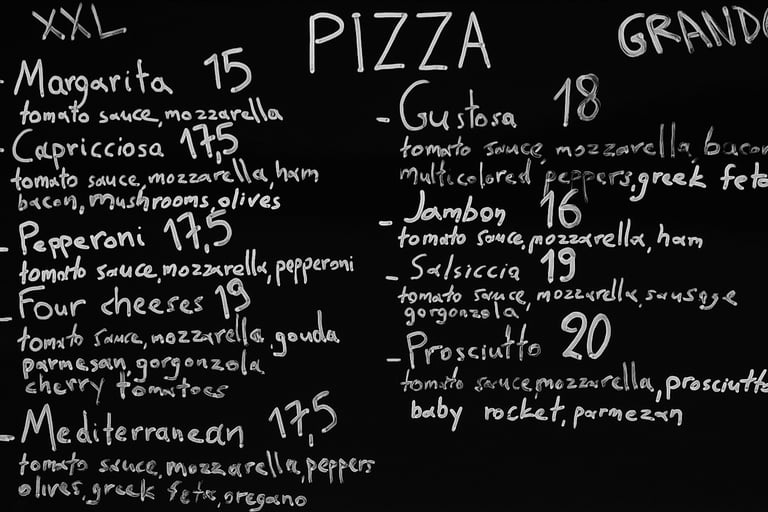 XXL PIZZA GRANDO
- Margarita 15
tomato sauce, mozzarella
- Capricciosa 17,5
tomato sauce, mozzarella, ham
bacon, mushrooms, olives
- Pepperoni 17,5
tomato sauce, mozzarella, pepperoni
- Four cheeses 19
tomato sauce, mozzarella, gouda
parmesan, gorgonzola
cherry tomatoes
- Mediterranean 17,5
tomato sauce, mozzarella, peppers
olives, greek feta, oregano
- Gustosa 18
tomato sauce, mozzarella, bacon
multicolored peppers, greek feta
- Jambon 16
tomato sauce, mozzarella, ham
- Salsiccia 19
tomato sauce, mozzarella, sausage
gorgonzola
- Prosciutto 20
tomato sauce, mozzarella, prosciutto
baby rocket, parmezan